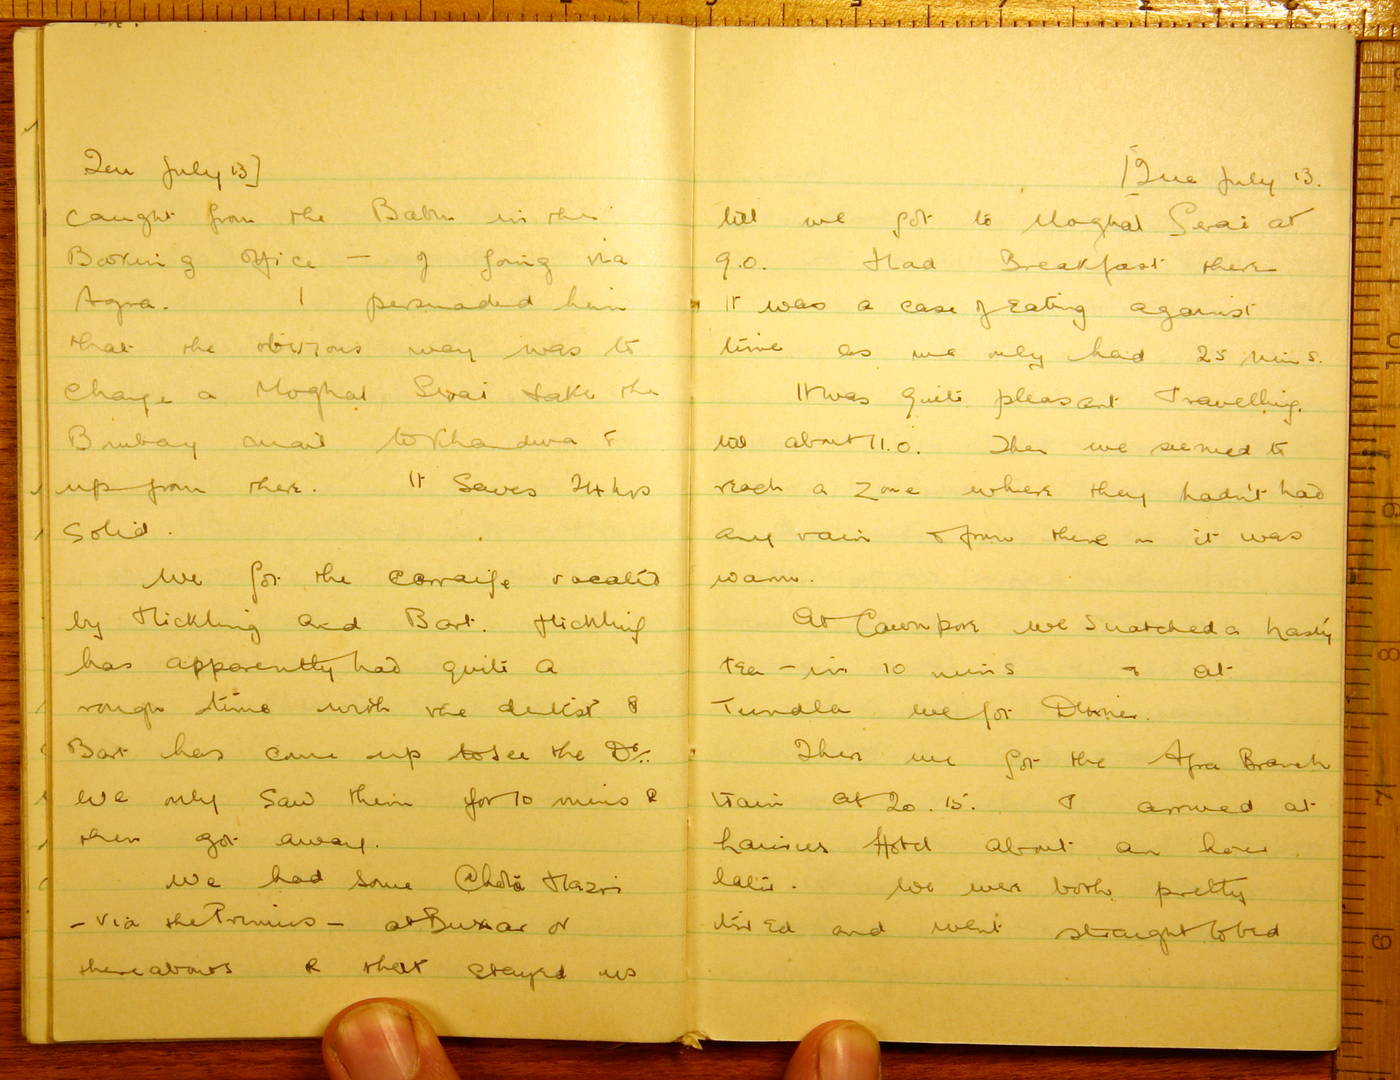 Tue July 13]
caught from the Babu in the
Booking Office — of going via
Agra. I persuaded him
that the obvious way was to
change a Moghal Serai take the
Bombay mail to Khandwa &
up from there. It saves 24 hrs
solid.
We got the carraige vacated
by Hickling and Bart. Hickling
has apparently had quite a
rough time with the dentist &
Bart has come up to see the Dr.
We only saw them for 10 mins &
then got away.
We had some Chota Hazri
- via the Primus - at Buxar or
thereabouts & that stayed us
[Tue July 13.
till we got to Moghal Serai at
9.0. Had Breakfast there
It was a case of Eating against
time as we only had 25 mins.
It was quite pleasant Travelling.
till about 11.0. Then we seemed to
reach a zone where they hadn't had
any rain & from there on it was
warm.
At Cawnpore we snatched a hasty
tea - in 10 mins & at
Tundla we got Dinner.
There we got the Agra Branch
train at 20.15. & arrived at
Lauries Hotel about an hour
later. We were both pretty
tired and went straight to bed